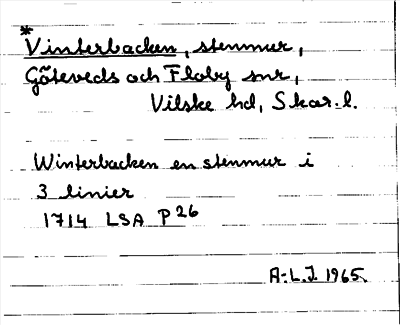 *
Vinterbacken, stenmur,
Göteveds och Floby snr,
Vilske hd, Skar. l.
Winterbacken en stenmur i
3 linier
1714 LSA P 26
A-L.J. 1965.